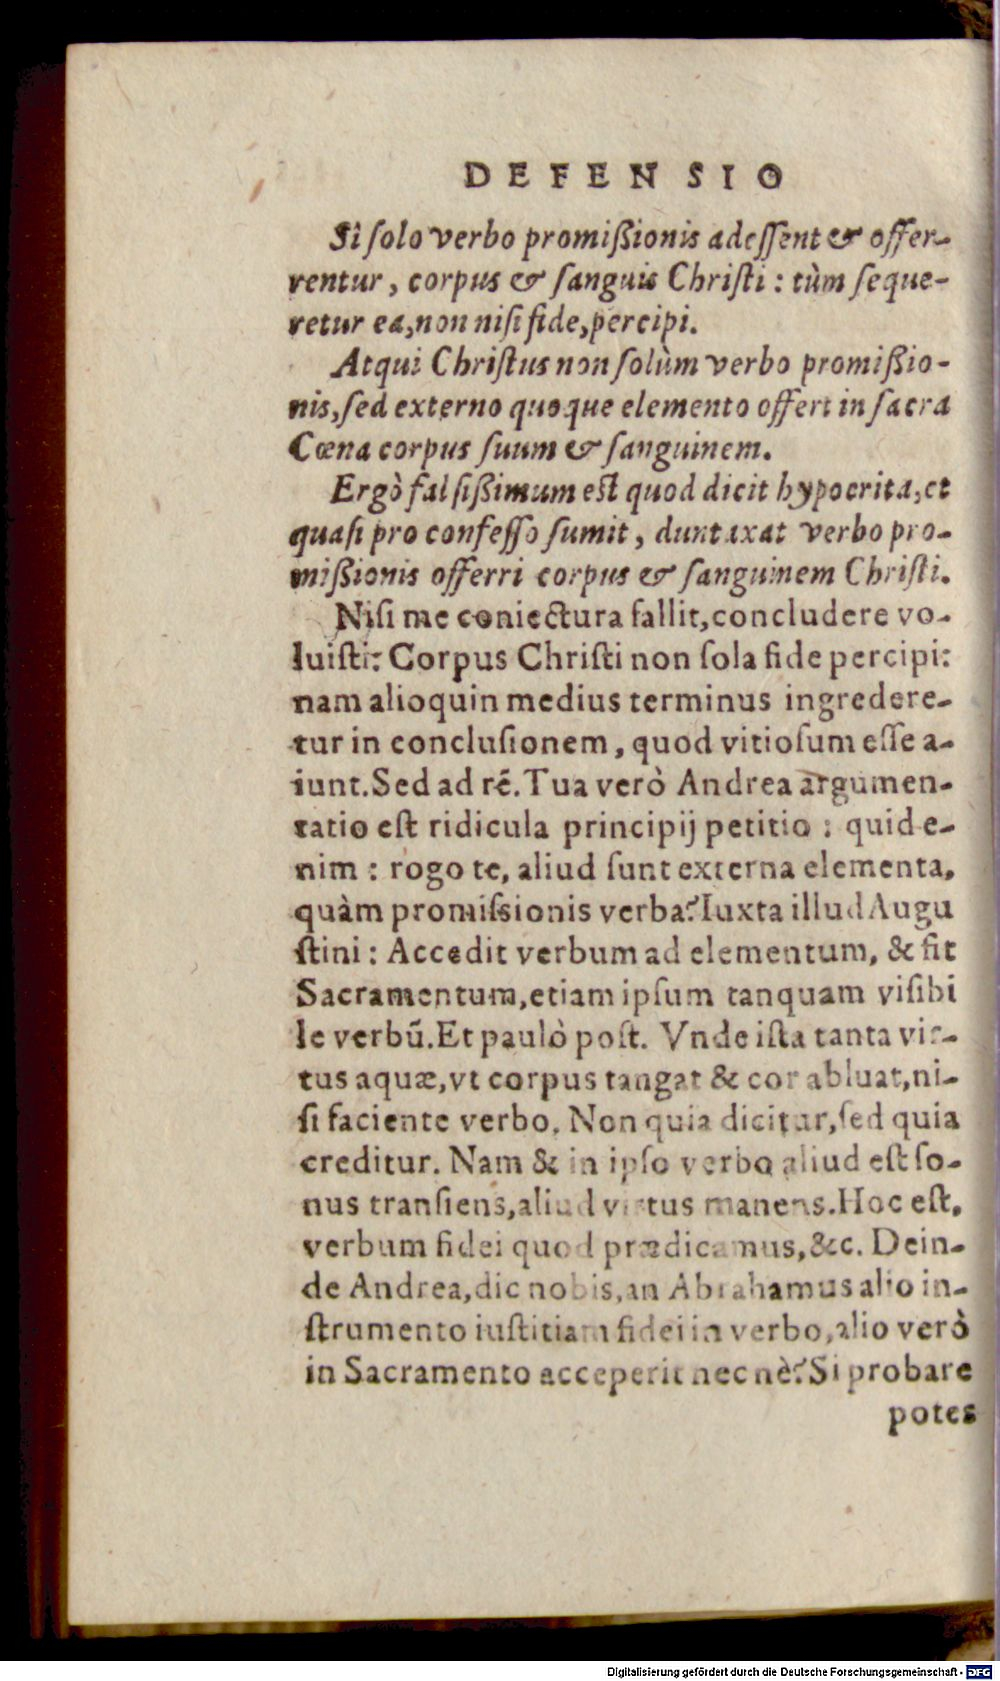 DEFENSIO
Si ſolo verbo promißionis adeſſent & offer-
rentur, corpus & ſanguis Chriſti: tùm ſeque-
retur ea, non niſi fide, percipi.
Atqui Chriſtus non ſolùm verbo promißio-
nis, ſed externo quoque elemento offert in ſacra
Cœna corpus ſuum & ſanguinem.
Ergò falſißimum eſt quod dicit hypocrita, et
quaſi pro confeſſo ſumit, duntaxat verbo pro-
mißionis offerri corpus & ſanguinem Chriſti.
Niſi me coniectura fallit, concludere vo-
luiſti: Corpus Chriſti non ſola fide percipi:
nam alioquin medius terminus ingredere-
tur in concluſionem, quod vitioſum eſſe a-
iunt. Sed ad rē. Tua verò Andrea argumen-
tatio eſt ridicula principij petitio: quid e-
nim: rogo te, aliud ſunt externa elementa,
quàm promiſsionis verba? Iuxta illud Augu
ſtini: Accedit verbum ad elementum, & fit
Sacramentum, etiam ipſum tanquam viſibi
le verbū. Et paulò poſt. Vnde iſta tanta vir-
tus aquæ, vt corpus tangat & cor abluat, ni-
ſi faciente verbo. Non quia dicitur, ſed quia
creditur. Nam & in ipſo verbo aliud eſt ſo-
nus tranſiens, aliud virtus manens. Hoc eſt,
verbum fidei quod prædicamus, &c. Dein-
de Andrea, dic nobis, an Abrahamus alio in-
ſtrumento iuſtitiam fidei in verbo, alio verò
in Sacramento acceperit nec nè? Si probare
potes
Digitalisierung gefördert durch die Deutsche Forschungsgemeinschaft - DFG